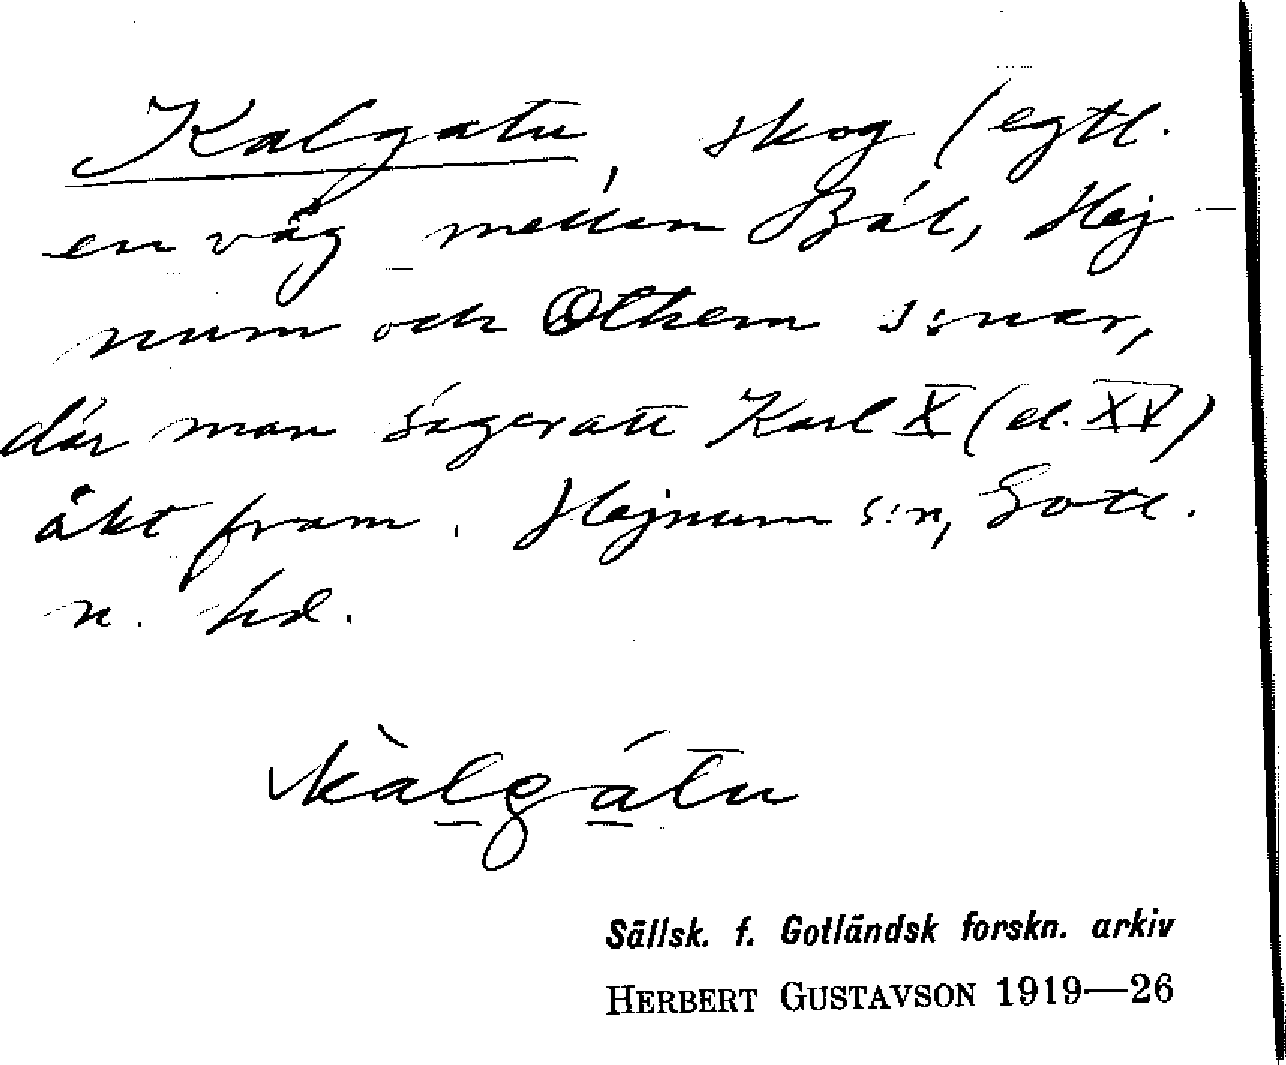 Kalgatu, skog (egtl.
en väg mellan Bäl, Hej-
num och Othem s:nar,
där man säger att Karl X (el. XV)
åkt fram. Hejnum s:n, Gotl.
n. hd.
kàlgátu
Sällsk. f. Gotländsk forskn. arkiv
HERBERT GUSTAVSON 1919—26